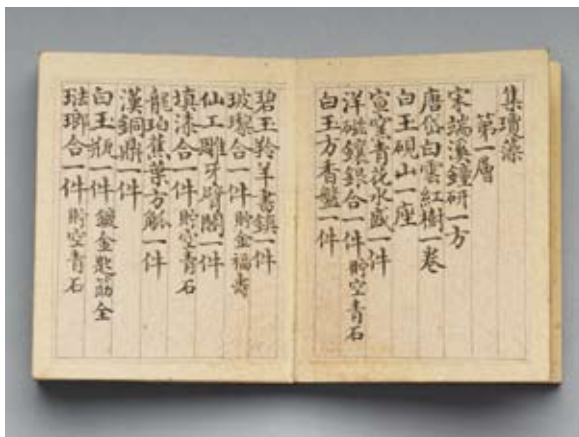 集瓊藻
第一層
宋端溪鐘研一方
唐岱白雲紅樹一卷
白玉硯山一座
宣窑青花水盛一件
洋磁鑲銀合一件 貯空青石
白玉方香盤一件
碧玉羚羊書鎮一件
玻瓈合一件 貯金福壽
仙工雕牙臂閣一件
填漆合一件 貯空青石
龍珀蕉葉方觚一件
漢銅鼎一件
白玉瓶一件 鍍金匙筯全
琺瑯合一件 貯空青石